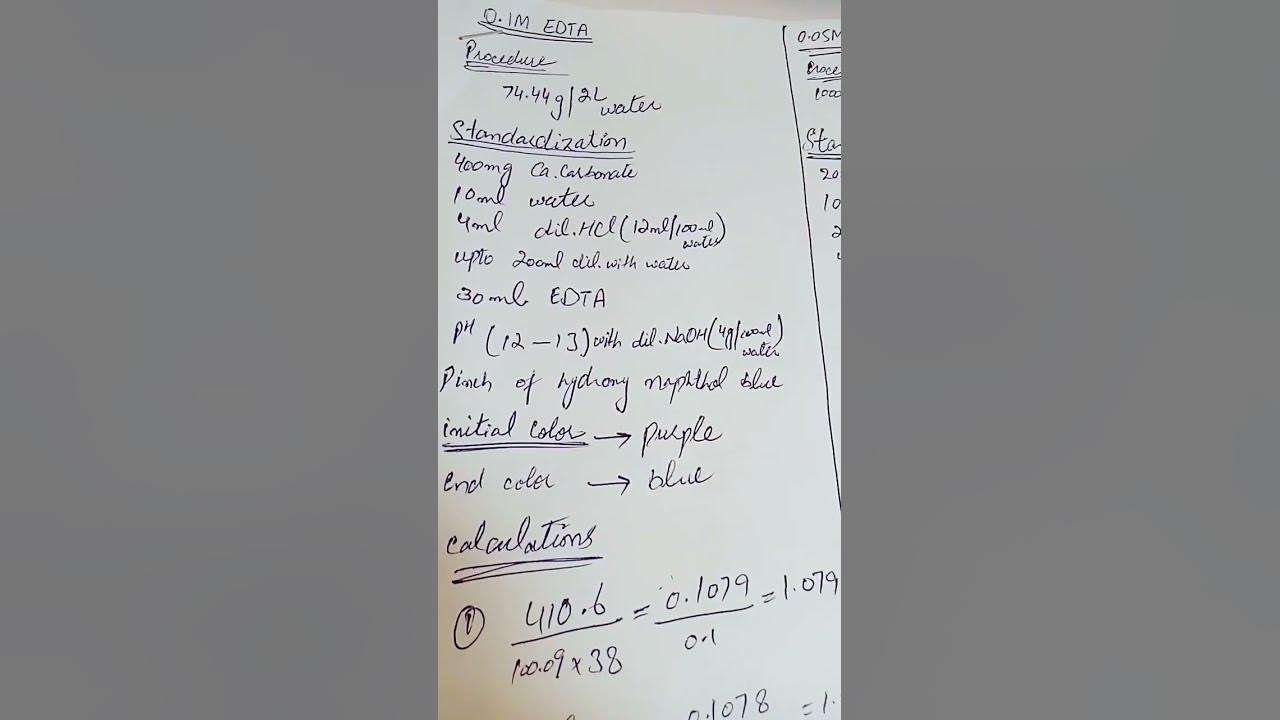 0.1M EDTA
Procedure
74.44g/2L water
Standardization
400mg Ca.Carbonate
10ml water
4ml dil.HCl (12ml/100ml water)
upto 200ml dil. with water
30ml EDTA
pH (12-13) with dil.NaOH (4g/100ml water)
Pinch of hydroxy naphthol blue
initial color → purple
end color → blue
Calculations
① 410.6 / 100.09 x 38 = 0.1079 / 0.1 = 1.079
0.1078 = 1.
0.05M
Proce
1000
Sta
20
10
2